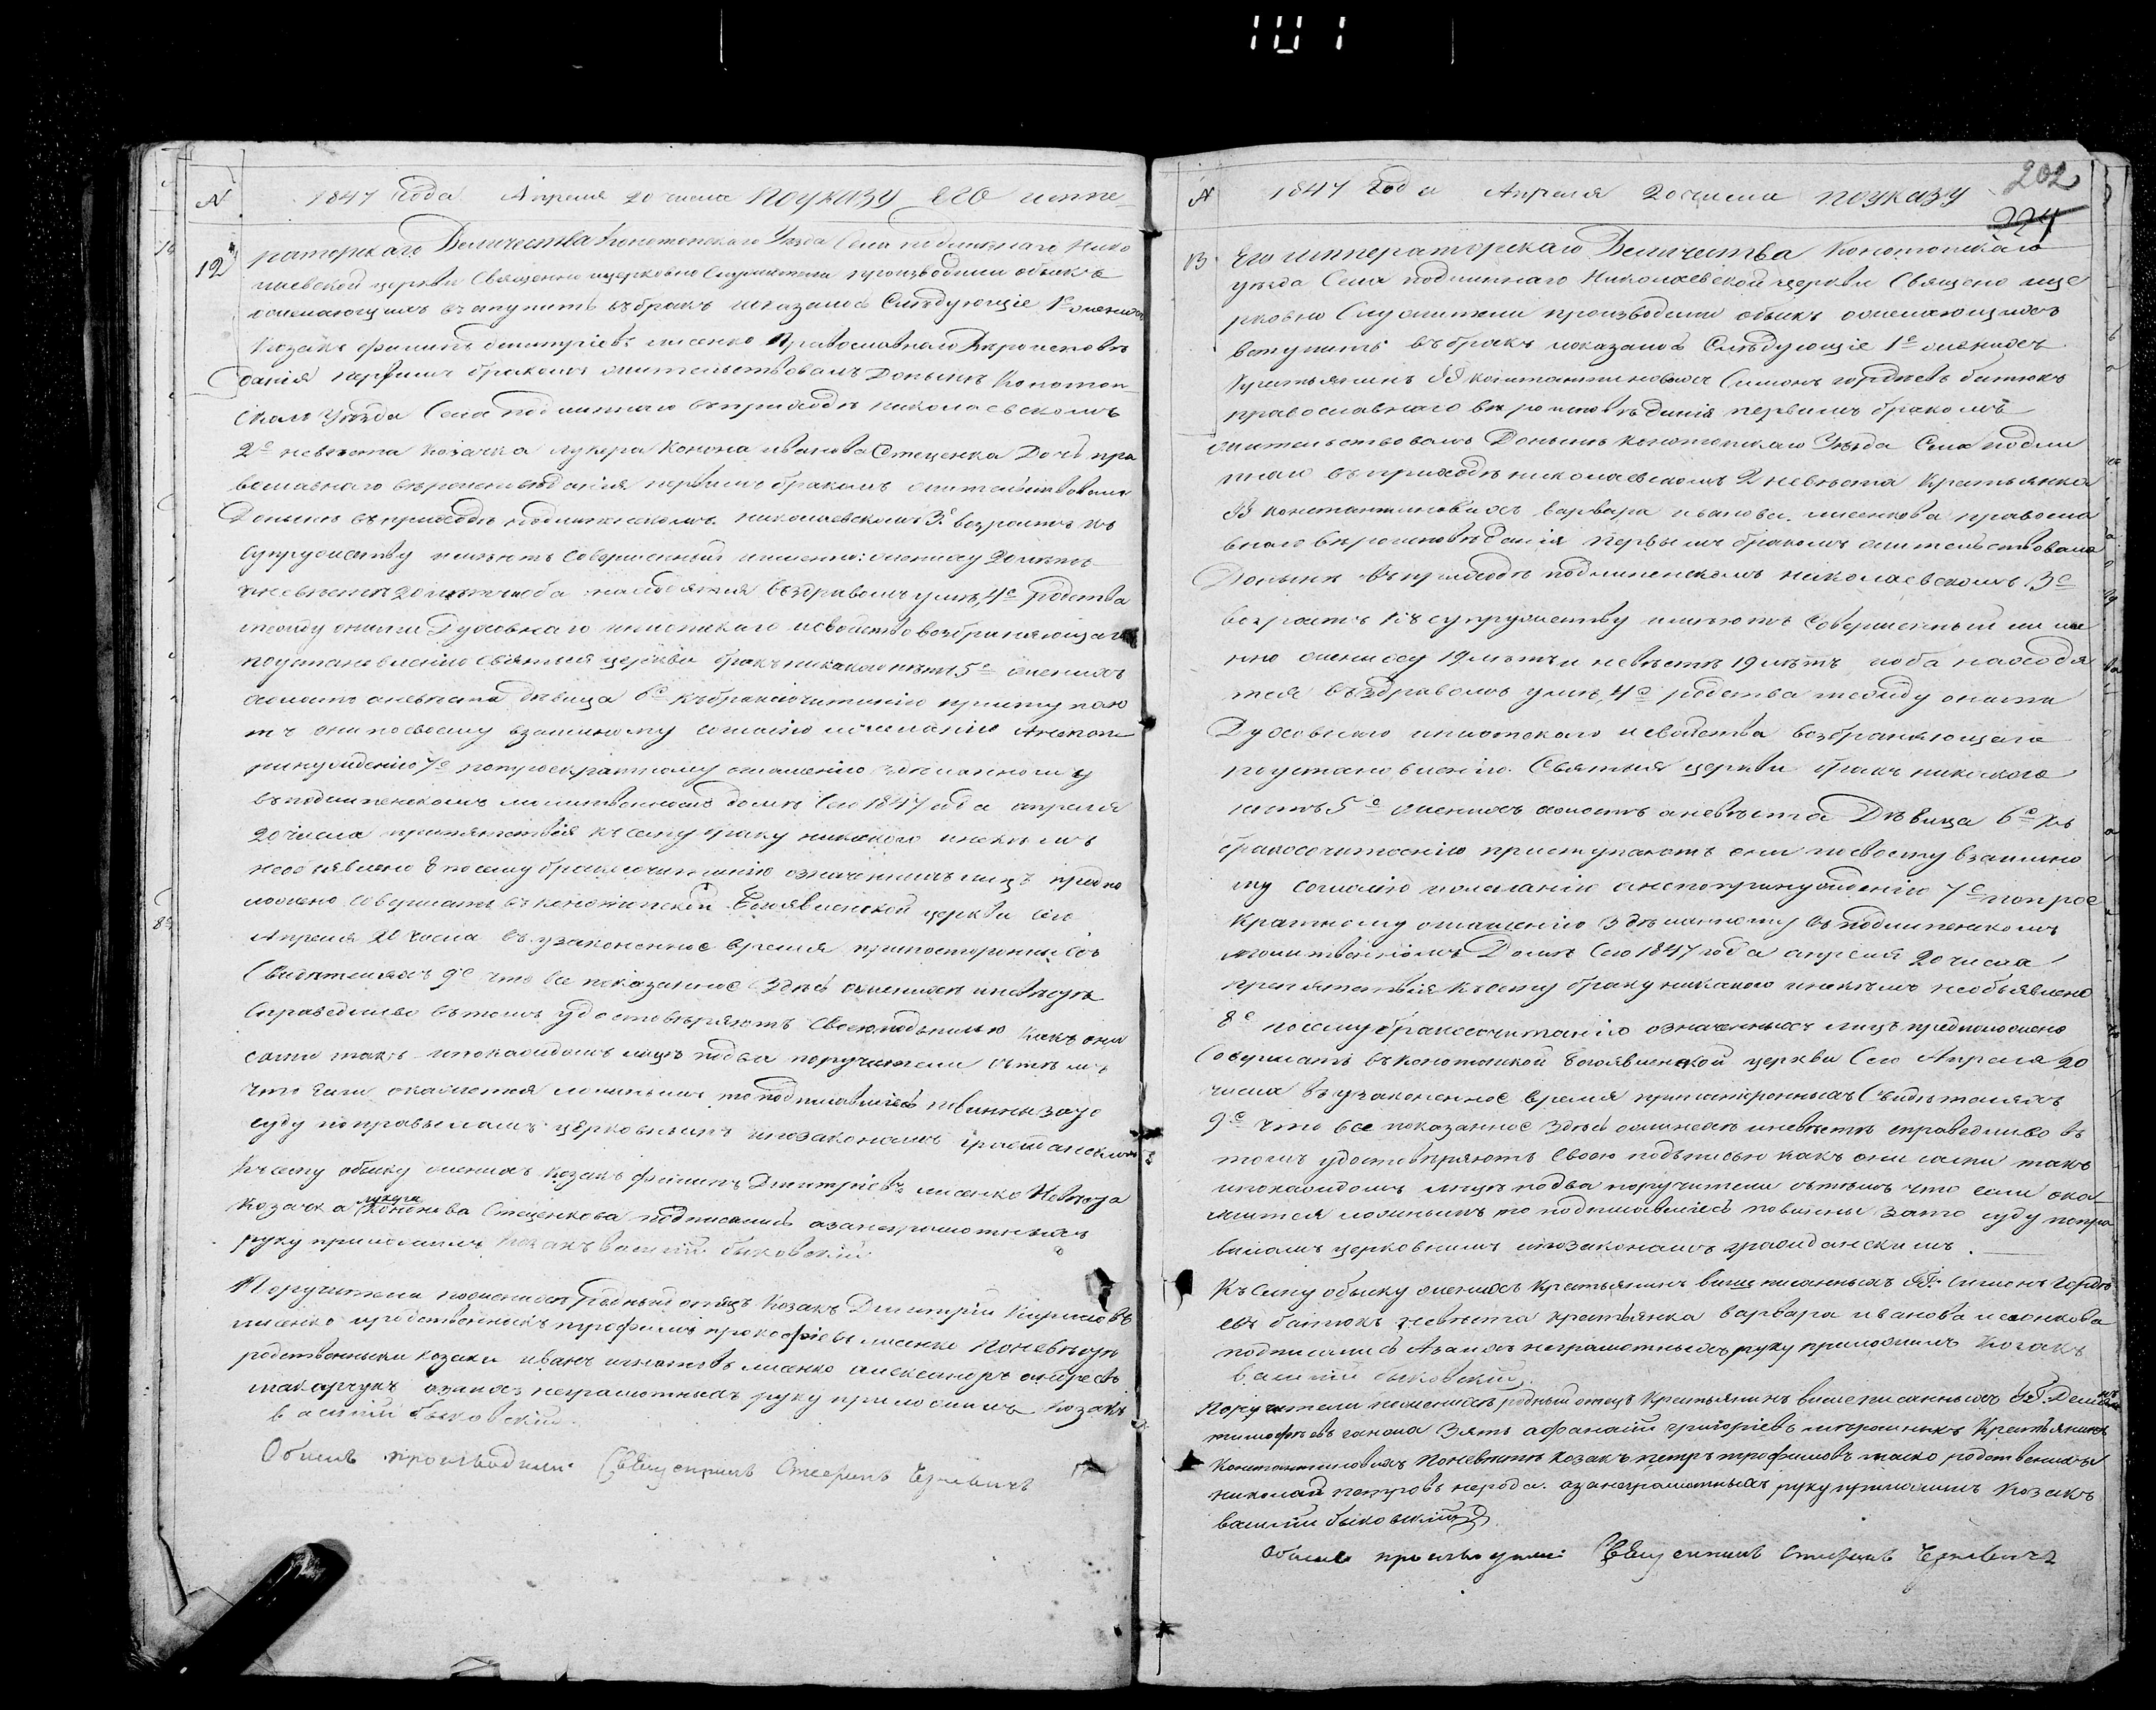 101
202
224
№ 1847 года Апреля 20 числа по указу его импе
12 раторскаго Величества Конотопского Уезда Села подлипнаго Нико
лаевской церкви Священно ицерковно Служители производили обыскъ
о желающихъ въступить въбракъ иказалось Следующіе 1е женихъ
Козакъ Филипъ Дмитріевъ лисенко Православнаго Вероисповѣ
данія первимъ бракомъ жительствовалъ Доныне Конотоп
Скаго Уезда Села подлипнаго въприходѣ николаевскомъ
2е невѣста козачка лукера Конона иванова Стеценка Дочь пра
вославнаго вероисповѣданія первимъ бракомъ жительствовала
Доныне въприходѣ подлипенскомъ николаевскомъ 3е возрастъ къ
Супружеству имѣютъ Совершенный именно: жениху 20 лѣтъ
и невѣсте 20 лѣтъ иоба находятся въздравомъ умѣ, 4е родства
между оними Духовнаго иплотскаго исвойство возбраняющаго
поустановленію Святыя церкви бракъ никакого нетъ 5е женихъ
холостъ аневѣста Дѣвица 6е къбракосочитанію приступаю
тъ они посвоему взаимному согласію ижеланію Анепоп
ринужденію 7е потроекратному оглашенію зделанному
въподлипенскомъ молитвенномъ домѣ Сего 1847 года апреля
20 числа препятствія къ сему браку никакого инекемъ
необъявлено 8 посему бракосочитанію означенныхъ лицъ предпо
ложено Совершить въконотопской Богоявленской церкви Сего
Апреля 20 числа въ узаконенное время припосторонныхъ
Свидетеляхъ 9е что все показанное Здесь оженихѣ иневѣсте
Справедливо вътомъ удостоверяютъ Своею подписью какъ они
сами такъ ипокаждомъ лицѣ подва поручителя стѣмъ
что Ежели окажется ложнымъ то подписавшіесь повинны зато
суду поправыламъ церковнымъ ипозаконамъ гражданскимъ
Късему обыску женихъ Козакъ Филипъ Дмитріевъ лисенко Невѣста
козачка лукера Кононова Стеценкова подписались азанеграмотныхъ
руку приложилъ Козакъ василій быковскій
Поручители поженихѣ родный отецъ Козакъ Дмитрій Кириловъ
лисенко иродственникъ трофимъ прокофіевъ лисенко Поневѣсте
родственники козаки иванъ игнатовъ лисенко александръ андреевъ
макарчукъ азаихъ неграмотныхъ руку приложилъ Козакъ
василій быковскій
Обыскъ производилъ Священникъ Стефанъ
№ 1847 года Апреля 20 числа по указу
13 Его императорскаго Величества Конотопскаго
уезда Села подлипнаго Николаевской церкви Священо ице
рковно Служители производили обыскъ ожелающихъ
вступить въбракъ показалось Следующіе 1е женихъ
Крестьянинъ ГГ константиновыхъ Симонъ гордѣевъ батюкъ
православнаго вероисповѣданія первимъ бракомъ
жительствовалъ Доныне Конотопскаго Уезда Села подли
пнаго въприходѣ николаевскомъ 2 невѣста Крестьянка
ГГ константиновихъ варвара иванова лисенкова правосла
внаго вероисповѣданія первымъ бракомъ жительствовала
Доныне въприходѣ подлипенскомъ николаевскомъ 3е
возрастъ къ супружеству имѣютъ Совершенный име
нно жениху 19 лѣтъ и невѣсте 19 лѣтъ иоба находя
тся въздравомъ умѣ, 4е родства между оними
Духовнаго иплотскаго исвойства возбраняющаго
поустановленію Святыя церкви бракъ никакого
нетъ 5е женихъ холостъ аневѣста Дѣвица 6е къ
бракосочитанію приступаютъ они посвоему взаимно
му согласію ижеланію анепопринужденію 7е потрое
кратному оглашенію Зделанному въ подлипенскомъ
молитвенномъ Домѣ Сего 1847 года апреля 20 числа
препятствія късему браку никакого инекемъ необъявлено
8е посему бракосочитанію означенныхъ лицъ предположено
Совершить въконотопской Богоявленской церкви Сего Апреля 20
числа въузаконенное время припостороннихъ Свидетеляхъ
9е что все показанное здесь оженихѣ иневѣсте справедливо въ
томъ удостоверяютъ Своею подписью какъ они сами такъ
ипокаждомъ лицѣ подва поручителя стѣмъ что если ока
жится ложнымъ то подписавшіесь повинны зато суду попра
виламъ церковнимъ ипозаконамъ гражданскимъ
Късему обыску женихъ Крестьянинъ вишеписанныхъ ГГ. Симонъ Гордѣ
евъ батюкъ невѣста крестьянка варвара иванова лисенкова
подписались Азаихъ неграмотныхъ руку приложилъ Козакъ
василій быковскій
Поручители поженихѣ родный отецъ Крестьянинъ вишеписанныхъ ГГ.
тимофѣевъ Зять афанасій григоріевъ Крестьянинъ
Константиновихъ Поневѣсте Козакъ петръ трофимовъ родственикъ
николай петровъ азанеграмотныхъ руку приложилъ Козакъ
василій быковскій
Обыскъ производилъ Священникъ Стефанъ